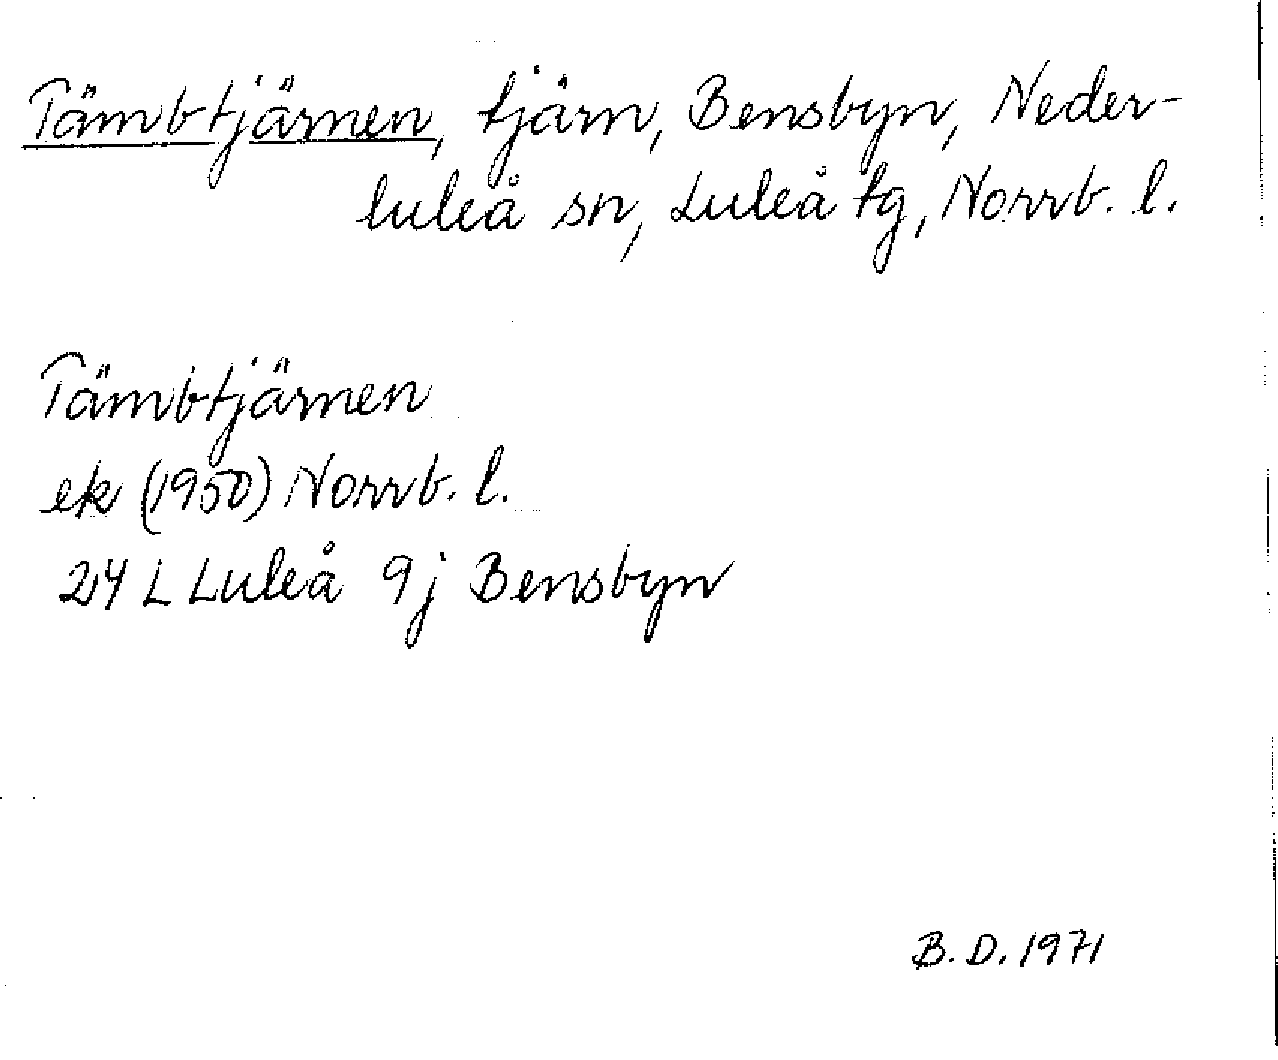 Tämbtjärnen, tjärn, Bensbyn, Neder-
luleå sn, Luleå tg, Norrb. l.
Tämbtjärnen
ek (1950) Norrb. l.
24 L Luleå 9j Bensbyn
B. D. 1971